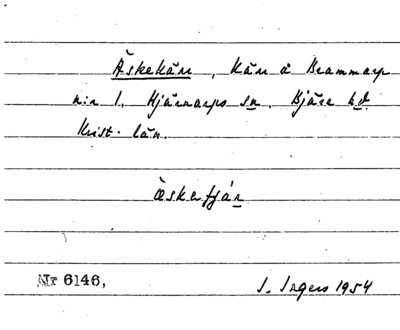 Äskekärr, kärr å Brammarp
n:r 1. Hjärnarps sn. Bjäre hd.
Krist. län.
æskefjár
Nr 6146, I. Ingers 1954